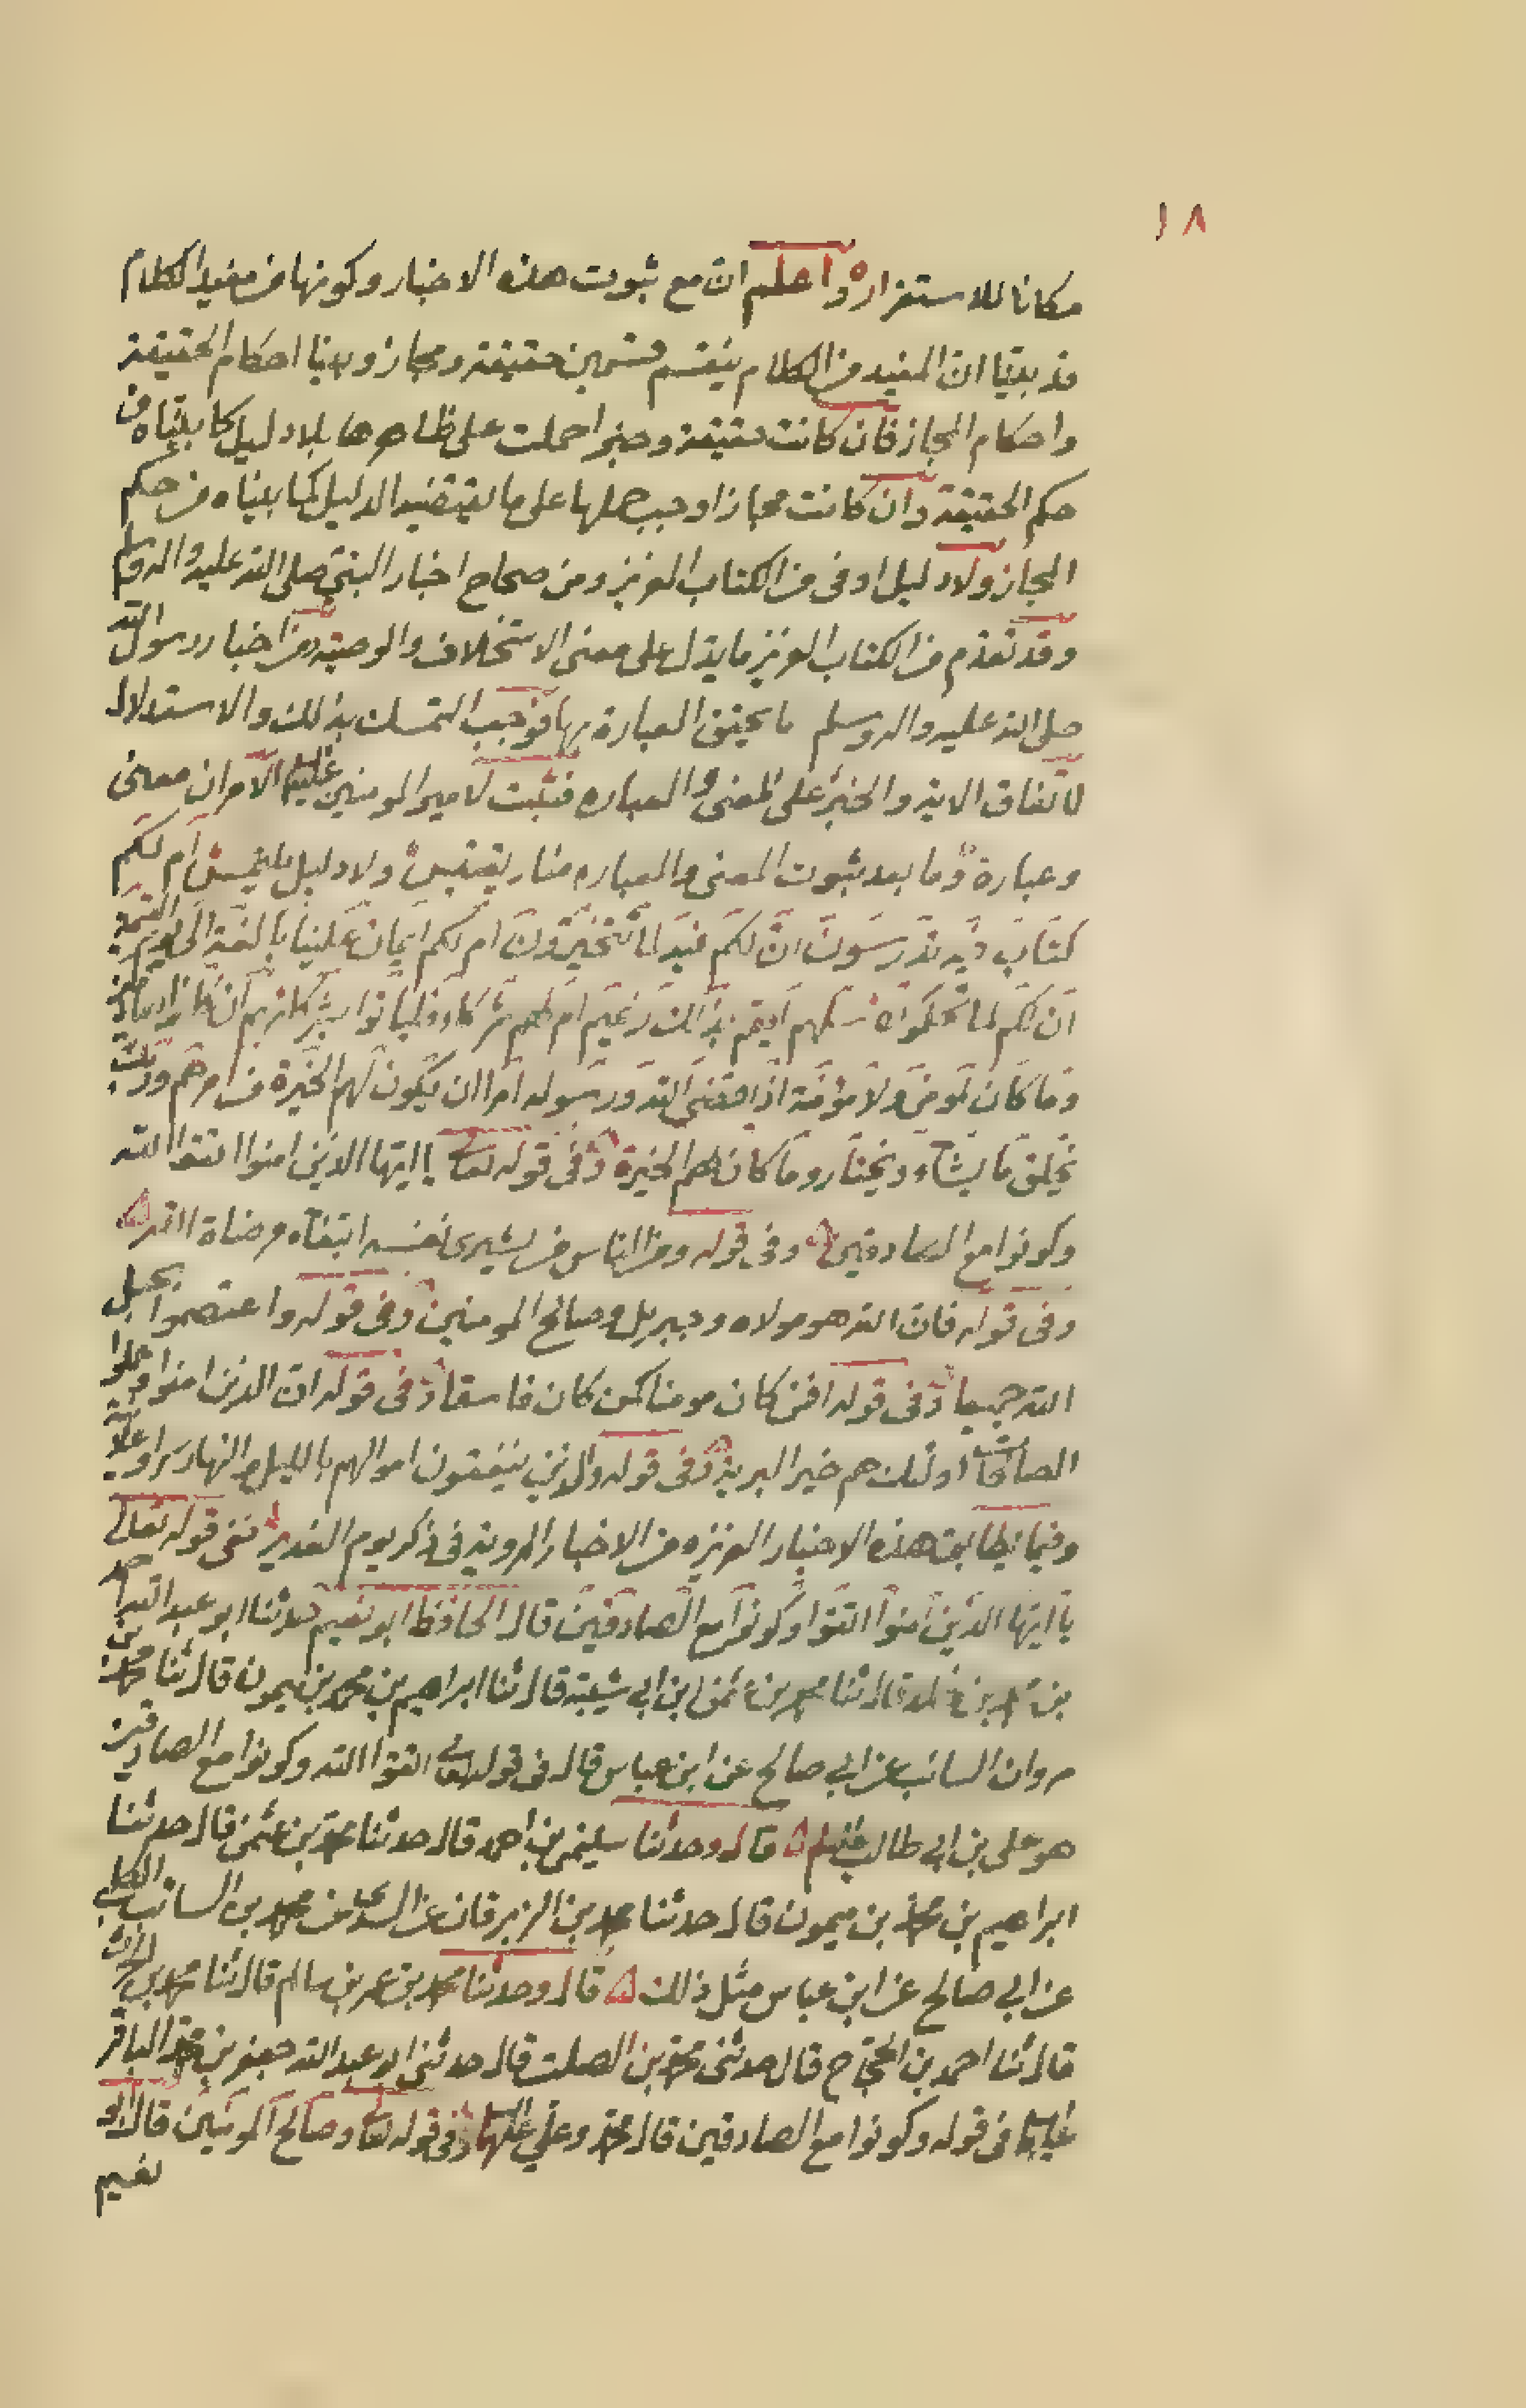 ١٨
مكانا للاستقراره واعلم ان مع ثبوت هذه الاخبار وكونها من مفيد الكلام
قد بينا ان المفيد من الكلام ينقسم قسمين حقيقة ومجاز وبينا احكام الحقيقة
واحكام المجاز فان كانت حقيقة وخبرا حملت على ظاهرها بلا دليل كما بيناه من
حكم الحقيقة وان كانت مجازا وجب حملها على ما يقتضيه الدليل كما بيناه من حكم
المجاز ولا دليل اوفى من الكتاب العزيز ومن صحاح اخبار النبي صلى الله عليه واله وسلم
وقد تقدم من الكتاب العزيز ما يدل على معنى الاستخلاف والوصية ومن اخبار رسول الله
صلى الله عليه واله وسلم ما يحقق العبارة بها فوجب التمسك بذلك والاستدلال
لاتفاق الاية والخبر على المعنى والعباره فثبت لامير المومنين عليه السلام الامران معنى
وعبارة وما بعد ثبوت المعنى والعباره منار يقتبس ولا دليل يلتمس ام لكم
كتاب فيه تدرسون ان لكم فيه لما تخيرون ام لكم ايمان علينا بالغة الى يوم القيمة
ان لكم لما تحكمون سلهم ايهم بذلك زعيم ام لهم شركاء فلياتوا بشركائهم ان كانوا صادقين
وما كان لمومن ولا مؤمنة اذا قضى الله ورسوله امرا ان يكون لهم الخيرة من امرهم وربك
يخلق ما يشآء ويختار وما كان لهم الخيرة وفى قوله تعالى يا ايها الذين امنوا اتقوا الله
وكونوا مع الصادقين ه وفى قوله ومن الناس من يشرى نفسه ابتغآء مرضاة الله ه
وفى قوله فان الله هو مولاه وجبريل وصالح المومنين وفى قوله واعتصموا بحبل
الله جميعا وفى قوله افمن كان مومنا كمن كان فاسقا وفى قوله ان الذين امنوا وعملوا
الصالحات اولئك هم خير البرية وفى قوله والذين ينفقون اموالهم بالليل والنهار سرا وعلانية
وفيما يطابق هذه الاخبار العزيزه من الاخبار المروية فى ذكر يوم الغدير ففى قوله تعالى
يا ايها الذين امنوا اتقوا وكونوا مع الصادقين قال الحافظ ابو نعيم حدثنا ابو عبد الله احمد
بن محمد بن مخلد قال ثنا محمد بن عثمن ابن ابي شيبة قال ثنا ابراهيم بن محمد بن ميمون قال ثنا محمد بن
مروان السائب عن ابي صالح عن ابن عباس قال فى قوله تعالى اتقوا الله وكونوا مع الصادقين
هو على بن ابي طالب عليه السلم ه قال وحدثنا سليمن بن احمد قال حدثنا محمد بن عثمن قال حدثنا
ابراهيم بن محمد بن ميمون قال حدثنا محمد بن الزبرقان عن السدي عن محمد بن السائب الكلبي
عن ابي صالح عن ابن عباس مثل ذلك ه قال وحدثنا محمد بن عمر بن سالم قال ثنا محمد بن الحرث
قال ثنا احمد بن الحجاج قال حدثنى محمد بن الصلت قال حدثنى ابو عبد الله جعفر بن محمد الباقر
عليهما السلام فى قوله وكونوا مع الصادقين قال محمد وعلي عليهما السلام وفى قوله تعالى وصالح المومنين قال ابو
نعيم